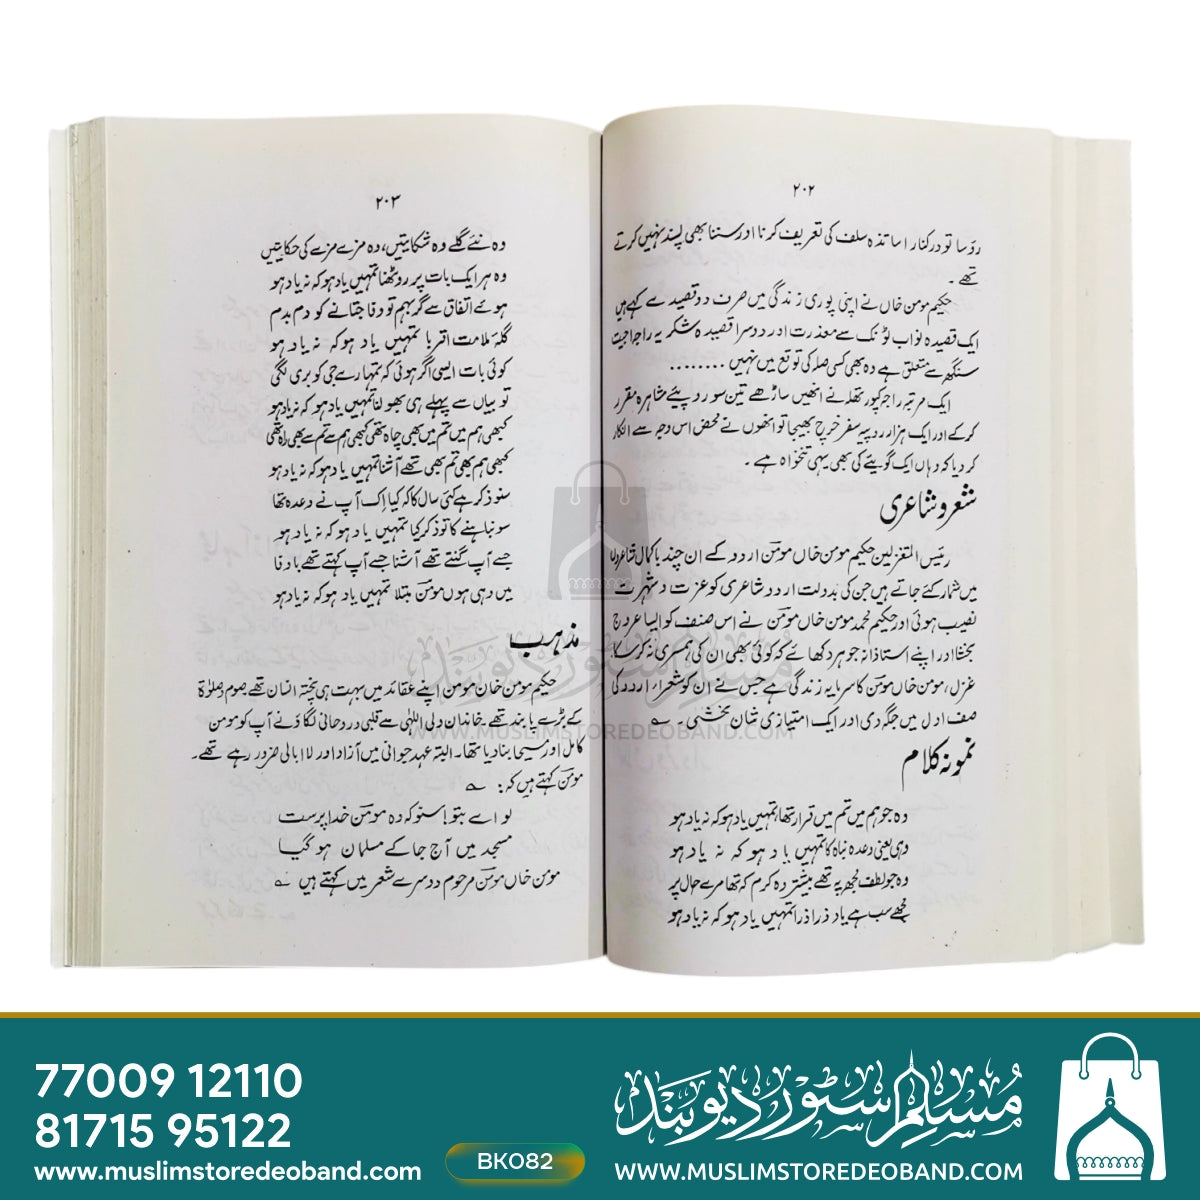 ۲۰۲
رؤسا تو درکنار اساتذہ سلف کی تعریف کرنا اور سننا بھی پسند نہیں کرتے
تھے۔
حکیم مومن خاں نے اپنی پوری زندگی میں صرف دو قصیدے کہے ہیں
ایک قصیدہ نواب ٹونک سے معذرت اور دوسرا قصیدہ شکریہ راجہ اجیت
سنگھ سے متعلق ہے وہ بھی کسی صلہ کی توقع میں نہیں ........
ایک مرتبہ راجہ کپور تھلہ نے انھیں ساڑھے تین سو روپیئے مشاہرہ مقرر
کر کے اور ایک ہزار روپیہ سفر خرچ بھیجا تو انھوں نے محض اس وجہ سے انکار
کر دیا کہ وہاں ایک گویئے کی بھی یہی تنخواہ ہے۔
شعر و شاعری
رئیس المتغزلین حکیم مومن خاں مومنؔ اردو کے ان چند باکمال شاعروں
میں شمار کئے جاتے ہیں جن کی بدولت اردو شاعری کو عزت و شہرت
نصیب ہوئی اور حکیم محمد مومن خاں مومنؔ نے اس صنف کو ایسا عروج
بخشا اور اپنے استاذانہ جوہر دکھائے کہ کوئی بھی ان کی ہمسری نہ کرسکا
غزل، مومن خاں مومنؔ کا سرمایہ زندگی ہے جس نے ان کو شعراء اردو کی
صف اول میں جگہ دی اور ایک امتیازی شان بخشی۔ ؎
نمونہ کلام
وہ جو ہم میں تم میں قرار تھا تمہیں یاد ہو کہ نہ یاد ہو
وہی یعنی وعدہ نباہ کا تمہیں یاد ہو کہ نہ یاد ہو
وہ جو لطف مجھ پہ تھے بیشتر وہ کرم کہ تھا مرے حال پر
مجھے سب ہے یاد ذرا ذرا تمہیں یاد ہو کہ نہ یاد ہو
۲۰۳
وہ نئے گلے وہ شکایتیں، وہ مزے مزے کی حکایتیں
وہ ہر ایک بات پر روٹھنا تمہیں یاد ہو کہ نہ یاد ہو
ہوئے اتفاق سے گر بہم تو وفا جتانے کو دم بدم
گلۂ ملامت اقربا تمہیں یاد ہو کہ نہ یاد ہو
کوئی بات ایسی اگر ہوئی کہ تمہارے جی کو بری لگی
تو بیاں سے پہلے ہی بھولنا تمہیں یاد ہو کہ نہ یاد ہو
کبھی ہم میں تم میں بھی چاہ تھی کبھی ہم سے تم سے بھی راہ تھی
کبھی ہم بھی تم بھی تھے آشنا تمہیں یاد ہو کہ نہ یاد ہو
سنو ذکر ہے کئی سال کا کہ کیا اک آپ نے وعدہ تھا
سو نباہنے کا تو ذکر کیا تمہیں یاد ہو کہ نہ یاد ہو
جسے آپ گنتے تھے آشنا جسے آپ کہتے تھے باوفا
میں وہی ہوں مومنؔ مبتلا تمہیں یاد ہو کہ نہ یاد ہو
مذہب
حکیم مومن خان مومن اپنے عقائد میں بہت ہی پختہ انسان تھے صوم وصلوٰۃ
کے بڑے پابند تھے خاندان ولی اللہی سے قلبی و روحانی لگاؤ نے آپ کو مومن
کامل اور مسیحا بنا دیا تھا۔ البتہ عہد جوانی میں آزاد اور لاابالی ضرور رہے تھے۔
مومنؔ کہتے ہیں کہ: ؎
لو اے بتو! سنو کہ وہ مومنؔ خدا پرست
مسجد میں آج جا کے مسلمان ہو گیا
مومن خاں مومنؔ مرحوم دوسرے شعر میں کہتے ہیں ؎
مسلم سٹور دیوبند
WWW.MUSLIMSTOREDEOBAND.COM
77009 12110
81715 95122
www.muslimstoredeoband.com
BK082
مسلم سٹور دیوبند
WWW.MUSLIMSTOREDEOBAND.COM